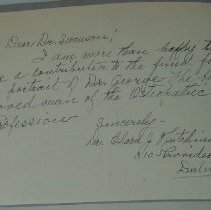 Dear Dr. Swanson:
I am more than happy t
a contributor to the fund fo
portrait of Dr. George
oved man of the Osteopathic
ofession
Sincerely -
Dr. Clara J. Hutchin
310 Provide
Dulu